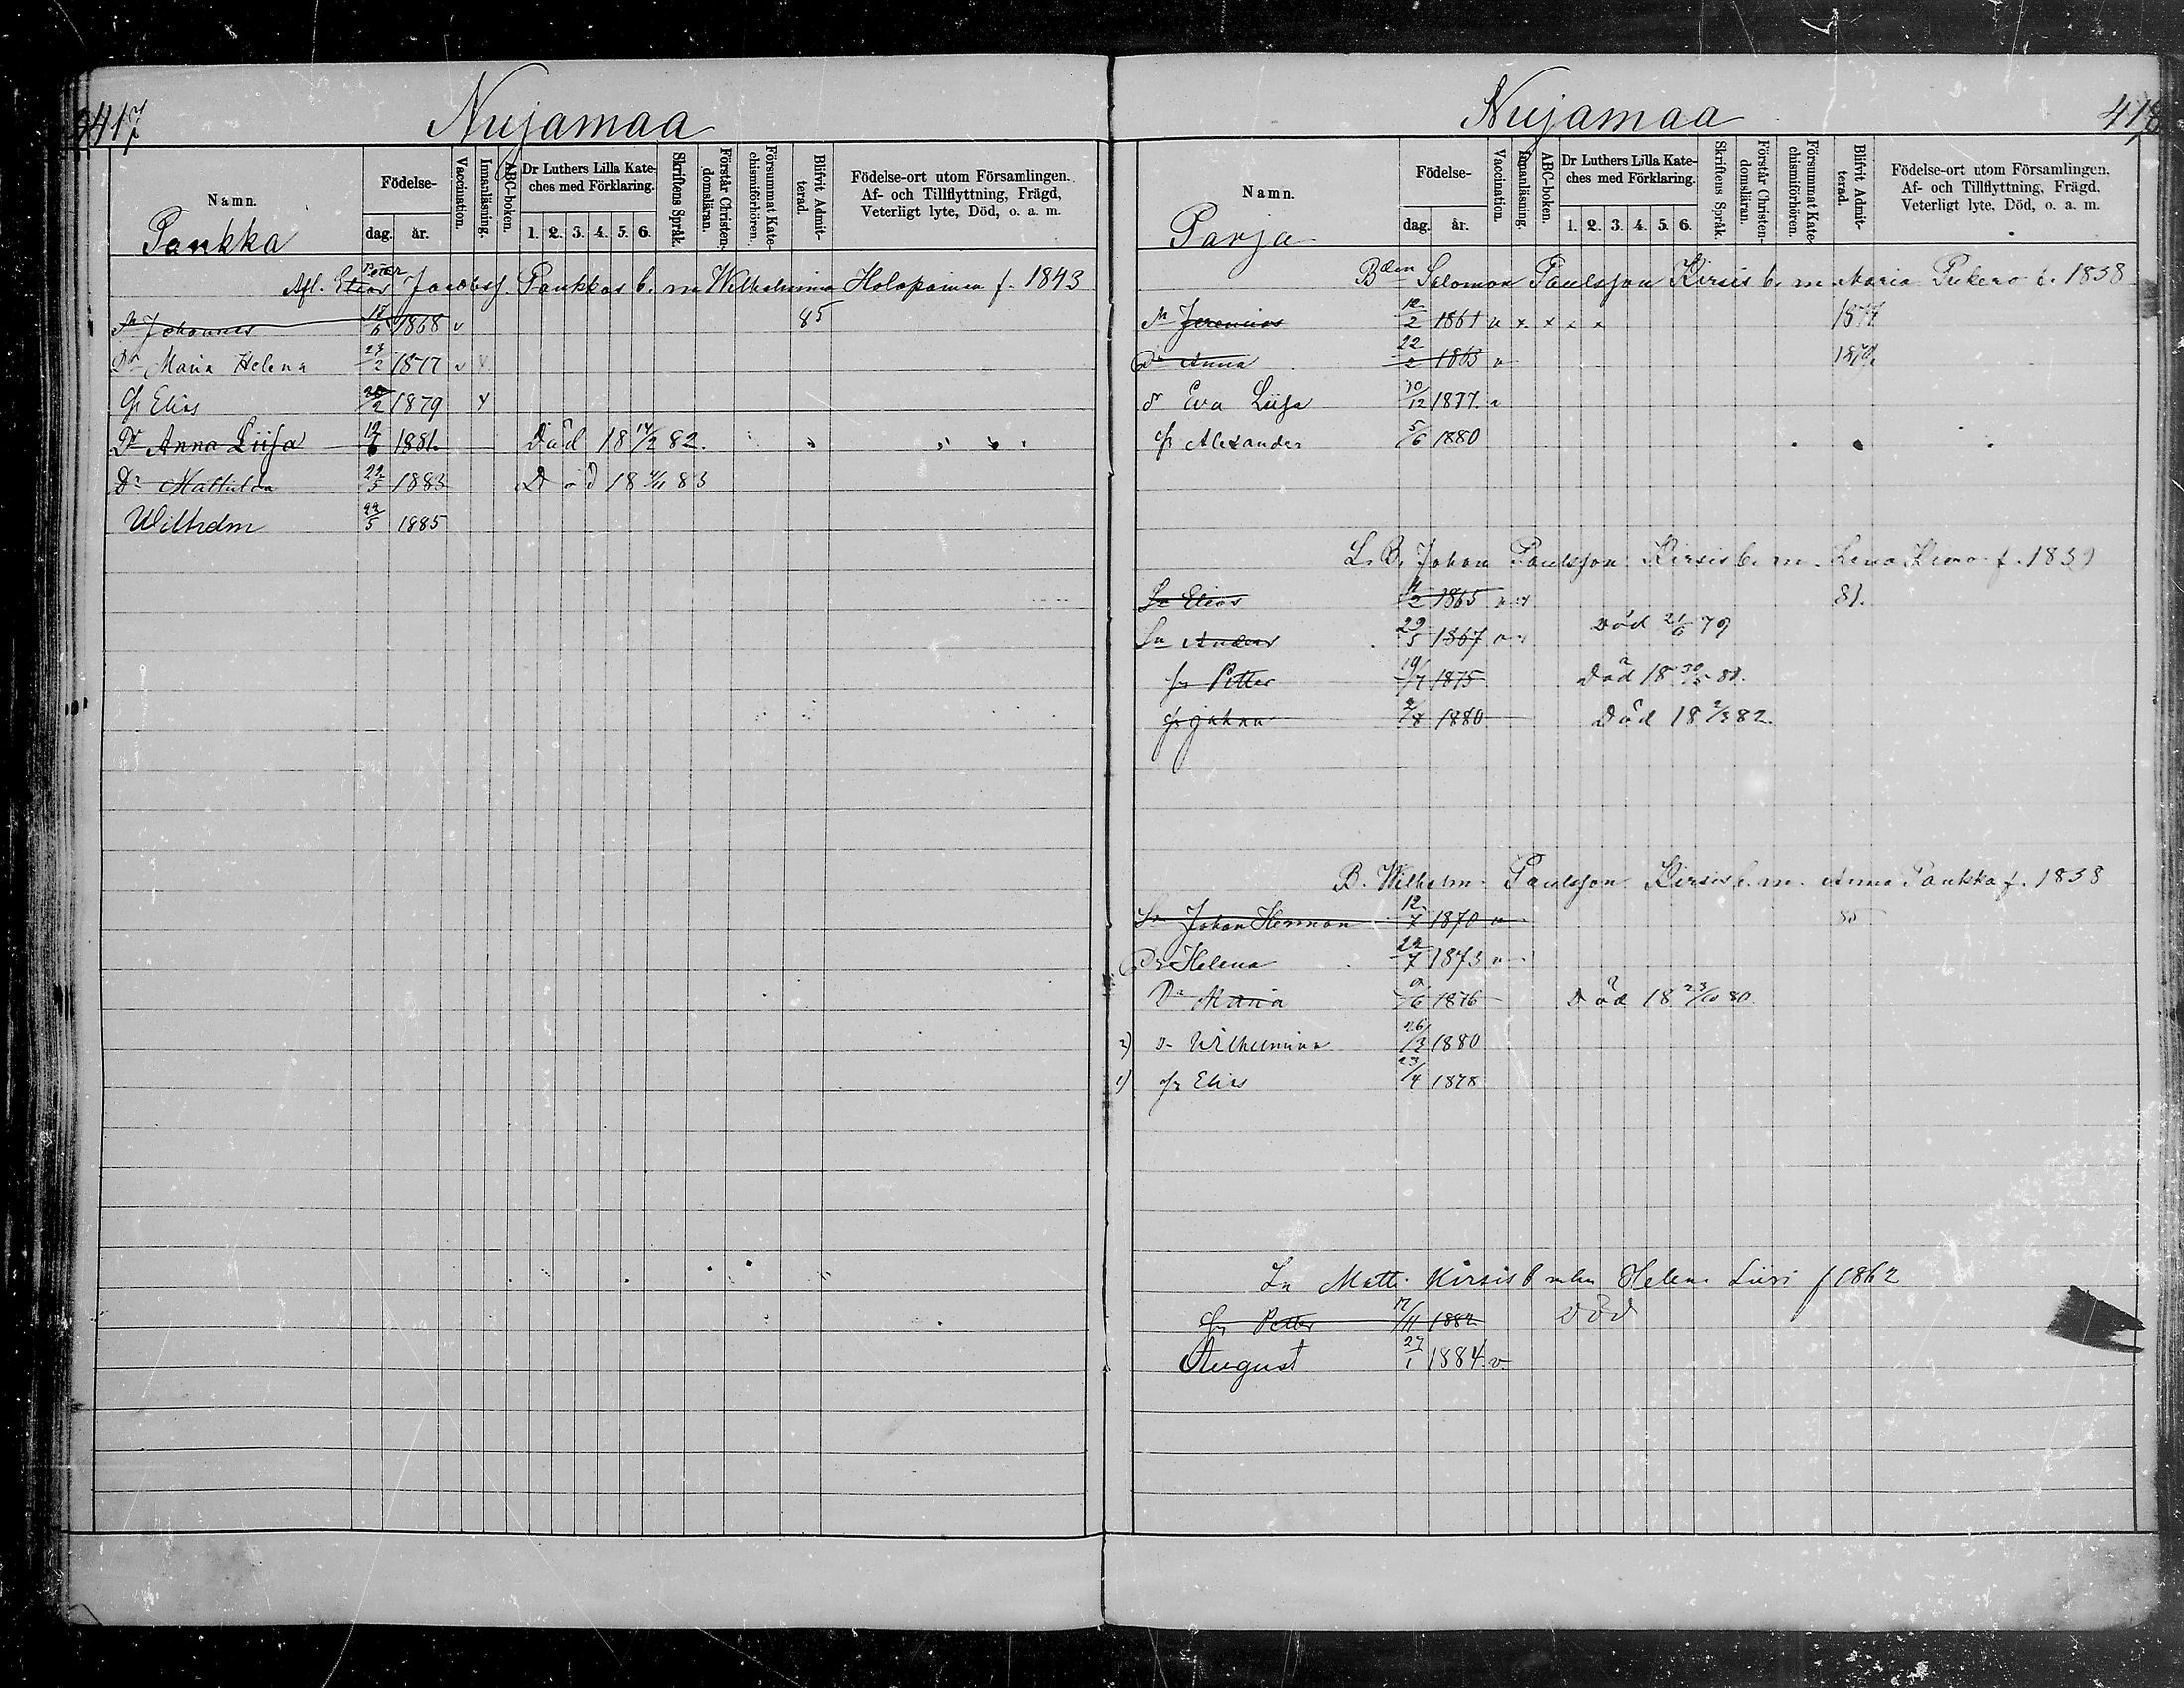 417
Nujamaa
Namn.
Födelse-
dag.
år.
Vaccination.
Innanläsning.
ABC-boken.
Dr Luthers Lilla Kate-
ches med Förklaring.
1. 2. 3. 4. 5. 6.
Skriftens Språk.
Förstår Christen-
domsläran.
Försummat Kate-
chismiförhören.
Blifvit Admit-
terad.
Födelse-ort utom Församlingen.
Af- och Tillflyttning, Frägd,
Veterligt lyte, Död, o. a. m.
Pankka
Afl. Elias Peter Jacobsf. Pankkas b. m Wilhelmina Holopainen f. 1843
Sn Johannes 1868 v 85
Dr Maria Helena 24/2 1877 v
Elias 20/2 1879
Dr Anna Liisa 1881 Död 18 14/2 82.
Dr Mathilda 1883 Död 18 83
Wilhelm 22/5 1885
Nujamaa
418
Namn.
Födelse-
dag.
år.
Vaccination.
Innanläsning.
ABC-boken.
Dr Luthers Lilla Kate-
ches med Förklaring.
1. 2. 3. 4. 5. 6.
Skriftens Språk.
Förstår Christen-
domsläran.
Försummat Kate-
chismiförhören.
Blifvit Admit-
terad.
Födelse-ort utom Församlingen.
Af- och Tillflyttning, Frägd,
Veterligt lyte, Död, o. a. m.
Parja
Bden Salomon Paulsson Kirsis b. m Maria Pukero f. 1838
Sn Jeremias 12/2 1861 x x x x
Dr Anna 22/2 1863
Dr Eva Liisa 30/12 1877
Alexander 5/6 1880
L. B. Johan Paulsson Kirsis b. m. Lena f. 1839
Sn Elias 1865 81.
Sn Anders 29/5 1867 Död 21/6 79
Petter 19/7 1875 Död 18
Johan 2/8 1880 Död 18 2/3 82.
B. Wilhelm Paulsson Kirsis b. m. Anna Pankka f. 1838
Sn Johan Herman 12/7 1870 85
Dr Helena 22/7 1873
Dr Maria 1876 Död 18 23/10 80.
2) Dr Wilhelmina 26/3 1880
1) Elias 23/4 1878
Sn Matti Kirsis b m hu Helena f 1862
Petter 17/11 1882 Död
August 29/1 1884 v